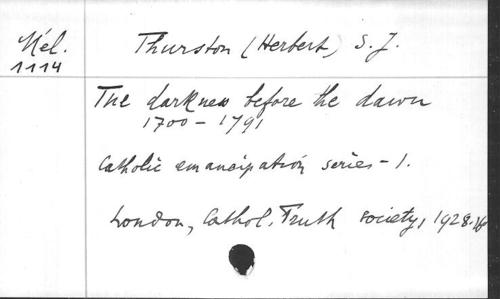 Mél.
1114
Thurston (Herbert) S.J.
The darkness before the dawn
1700 - 1791
Catholic emancipation series - 1.
London, Cathol. Truth society, 1928.